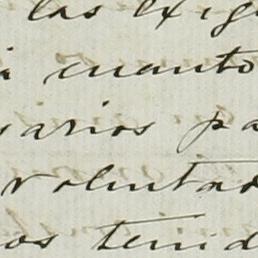 las exig
i cuanto
sarios pa
volunta
os tenid